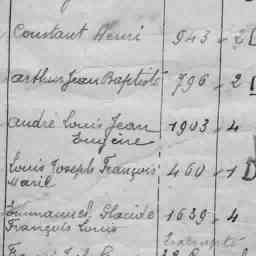 Constant Henri 943 - 2
Arthur Jean Baptiste 796 - 2
André Louis Jean 1903 - 4
Eugène
Louis Joseph François 460 - 1 D
Marie
Emmanuel Claude 1639 - 4
François Louis